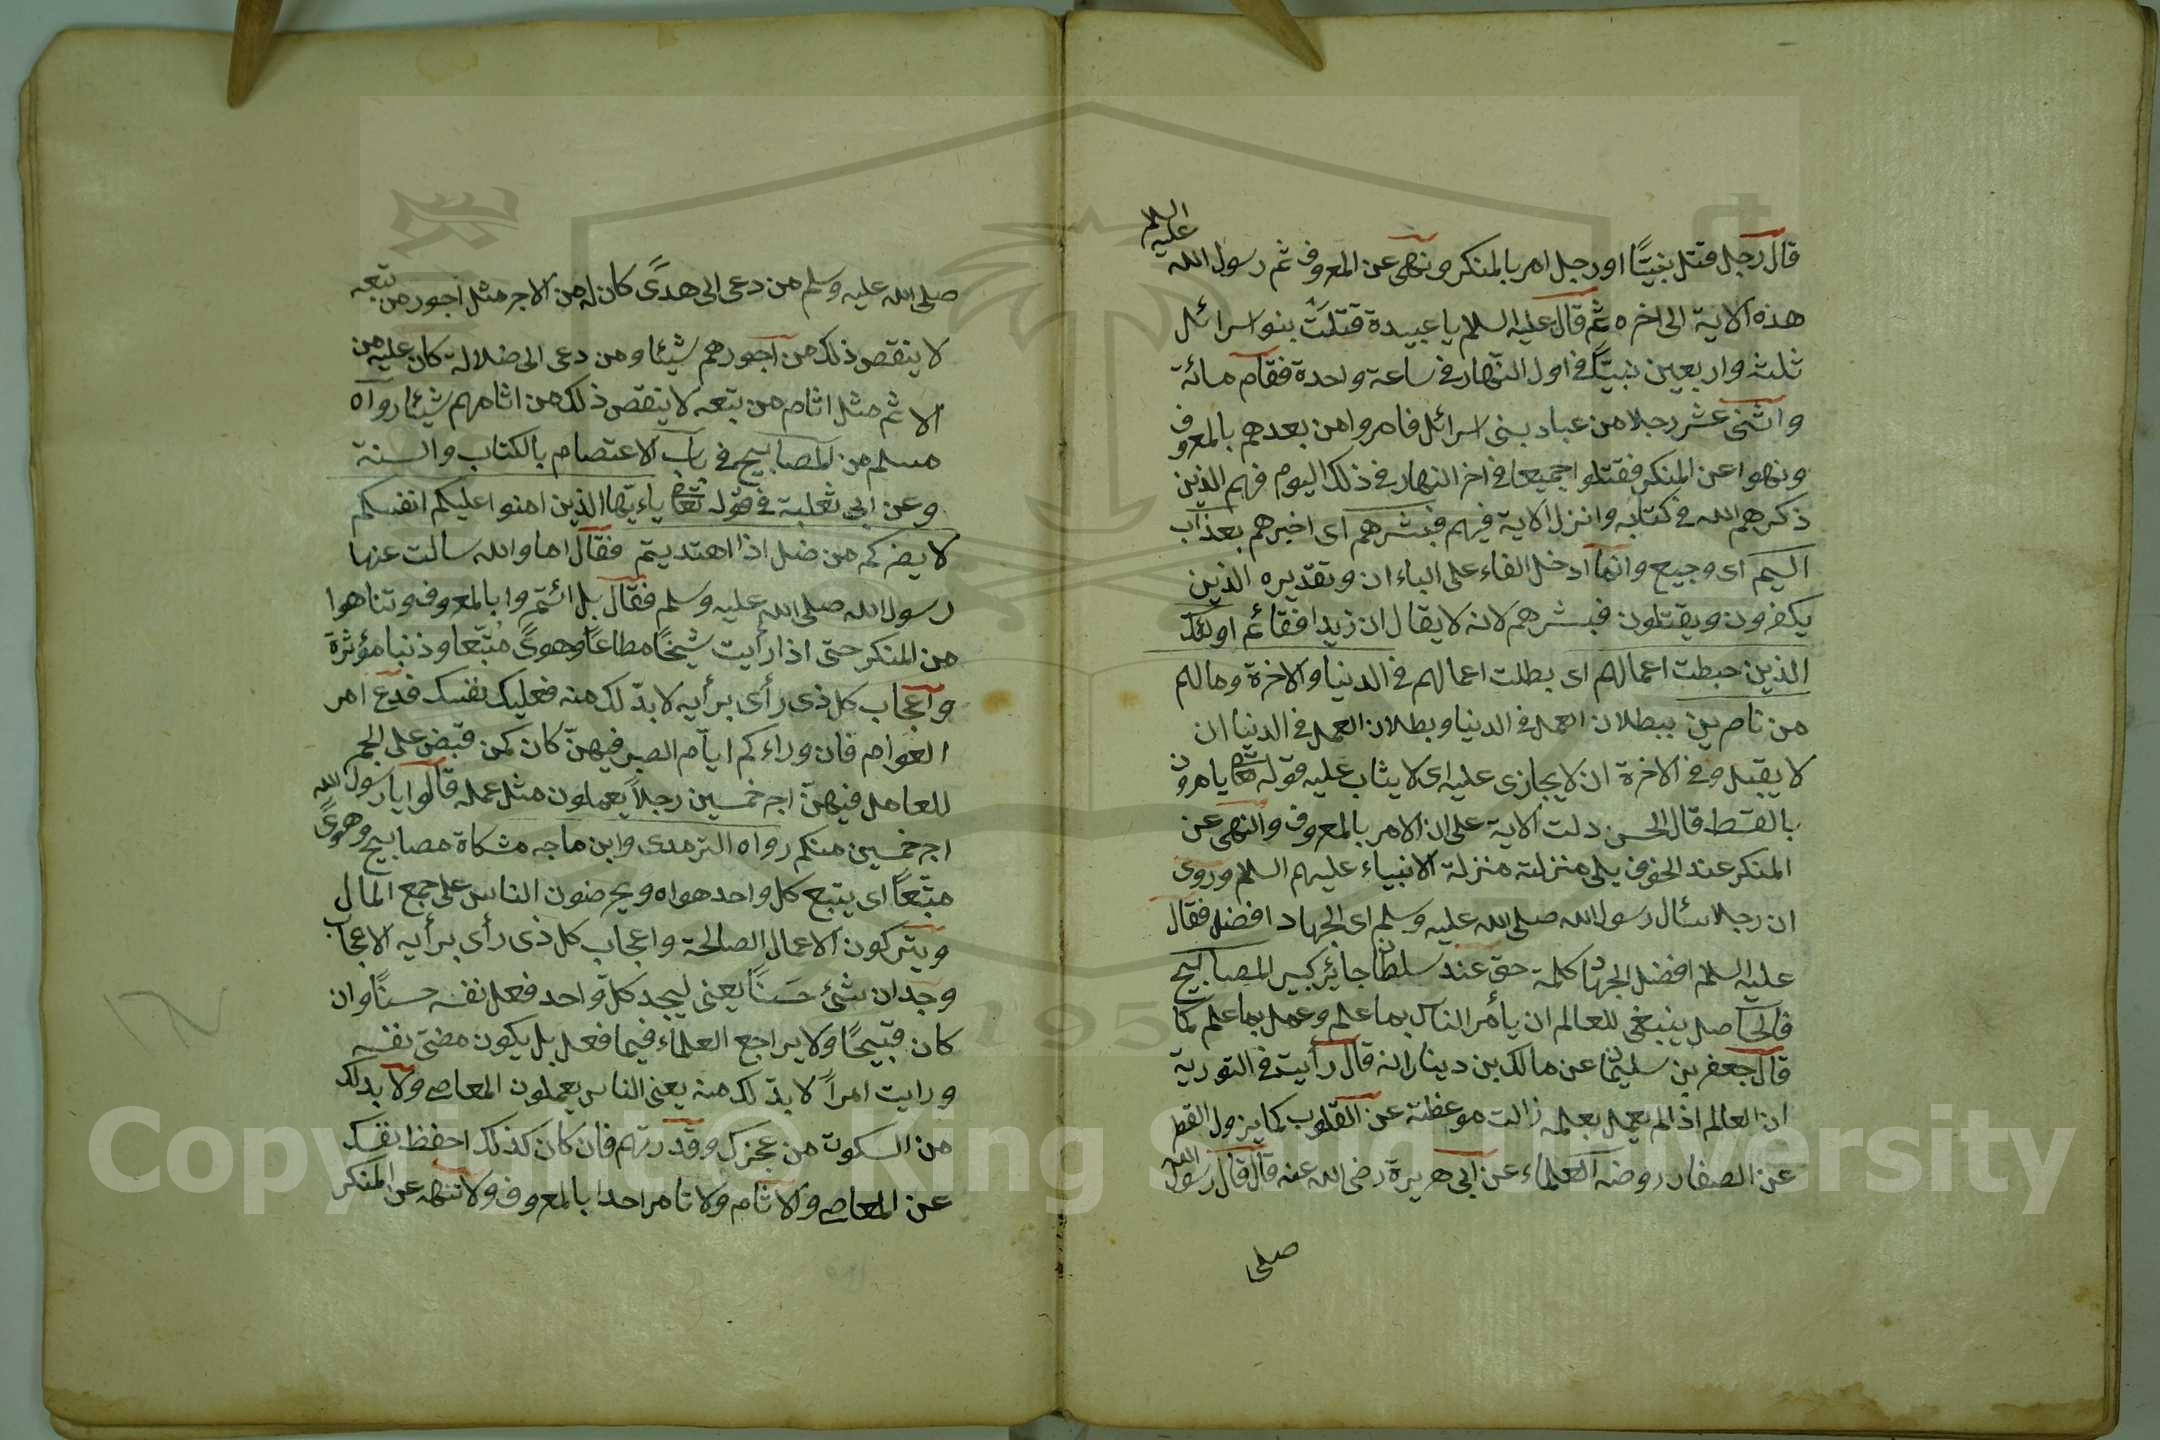 قال رجل قتل نبيّا او رجل امر بالمنكر ونهى عن المعروف ثم رسول الله عليه السلم
هذه الاية الى اخره ثم قال عليه السلم يا عبيدة قتلت بنو اسرائل
ثلثة واربعين نبيّا في اول النّهار في ساعة واحدة فقام مائة
واثنى عشر رجلا من عباد بنى اسرائل فامروا من بعدهم بالمعروف
ونهوا عن المنكر فقتلوا جميعا في اخر النهار في ذلك اليوم فهم الذين
ذكرهم الله في كتابه وانزل الاية فيهم فبشرهم اى اخبرهم بعذاب
اليم اى وجيع وانما ادخل الفاء على الباء ان وتقديره الذين
يكفرون ويقتلون فبشرهم لانه لا يقال ان زيدا فقائم اولئك
الذين حبطت اعمالهم اى بطلت اعمالهم في الدنيا والاخرة ومالهم
من ناصرين ببطلان العمل في الدنيا وبطلان العمل في الدنيا ان
لا يقبل وفي الاخرة ان لا يجازى عليه اى لا يثاب عليه قوله تعا يامرون
بالقسط قال الحسن دلت الاية على ان الامر بالمعروف والنهى عن
المنكر عند الخوف يلى منزلته منزلة الانبياء عليهم السلم وروى
ان رجلا سئال رسول الله صلى الله عليه وسلم اى الجهاد افضل فقال
عليه السلم افضل الجهاد كلمة حق عند سلطان جائر كبير المصابيح
فالحاصل ينبغى للعالم ان يأمر الناس بما علم وعمل بما علم كما
قال جعفر بن سليمان عن مالك بن دينار انه قال رأيت في التورية
ان العالم اذا لم يعمل بعلمه زالت موعظته عن القلوب كما يزول القطر
عن الصفار روضه العلماء عن ابى هريرة رضى الله عنه قال قال رسول الله
صلى
صلى الله عليه وسلم من دعى الى هدًى كان له من الاجر مثل اجور من تبعه
لا ينقص ذلك من اجورهم شيئا ومن دعى الى ضلالة كان عليه من
الاثم مثل اثام من تبعه لا ينقص ذلك من اثامهم شيئا رواه
مسلم من المصابيح في باب الاعتصام بالكتاب والسنة
وعن ابى ثعلبة في قوله تعا ياءيّها الذين امنوا عليكم انفسكم
لا يضركم من ضل اذا اهتديتم فقال اما والله سالت عنها
رسول الله صلى الله عليه وسلم فقال بل ائتمروا بالمعروف وتناهوا
من المنكر حتى اذا رأيت شيخًا مطاعًا وهوىً مُتّبعا وذنبا مؤثرة
واعجاب كل ذى رأى برأيه لا بدّ لك منه فعليك نفسك فدع امر
العوام فان وراءكم ايّام الصبر فيهنّ كان كمن قبض على الجمر
للعامل فيهنّ اجر خمسين رجلاً يعملون مثل عمله قالوا يا رسول الله
اجر خمسين منكم رواه الترمدى وابن ماجه مشكاة مصابيح وهوىً
متّبعًا اى يتبع كل واحد هواه ويحرضون الناس على جمع المال
ويتركون الاعمال الصالحة واعجاب كل ذى رأى برأيه الاعجاب
وجدان شئ حَسَنًا يعنى ليجد كل واحد فعل نفسه حسنًا وان
كان قبيحًا ولا يراجع العلماء فيما فعل بل يكون مفتى نفسه
ورايت امراً لا بدّ لك منه يعنى الناس يعملون المعاصى ولا بد لك
من السكوت من عجزك وقدرتهم فان كان كذلك احفظ نفسك
عن المعاصى والاثام ولا تامر احدا بالمعروف ولا تنهه عن المنكر
Copyright © King Saud University
1957